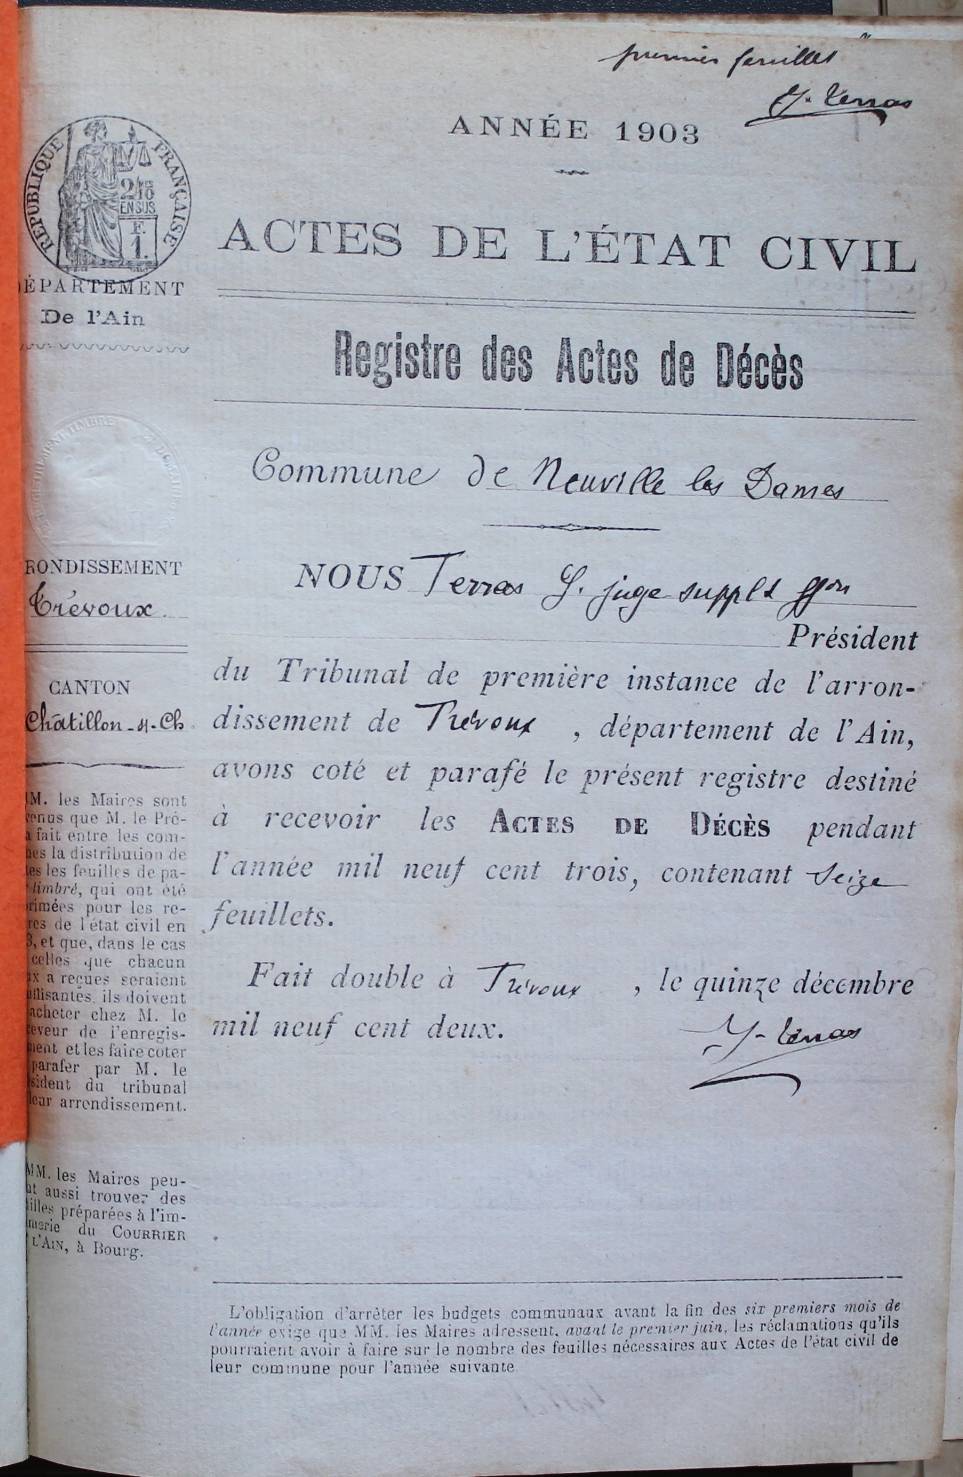 premier feuillet
J. Terras
ANNÉE 1903
RÉPUBLIQUE FRANÇAISE
2/10
EN SUS
F.
1.
ACTES DE L'ÉTAT CIVIL
DÉPARTEMENT
De l'Ain
Registre des Actes de Décès
Commune de Neuville les Dames
RONDISSEMENT
Trévoux
NOUS Terras J. juge supplt ffon
Président
CANTON
Châtillon-s-Ch
du Tribunal de première instance de l'arron-
dissement de Trévoux, département de l'Ain,
avons coté et parafé le présent registre destiné
à recevoir les ACTES DE DÉCÈS pendant
l'année mil neuf cent trois, contenant seize
feuillets.
Fait double à Trévoux, le quinze décembre
mil neuf cent deux.
J. Terras
M. les Maires sont
venus que M. le Pré-
a fait entre les com-
nes la distribution de
les les feuilles de pa-
timbré, qui ont été
rimées pour les re-
res de l'état civil en
3, et que, dans le cas
celles que chacun
ux a reçues seraient
uffisantes, ils doivent
acheter chez M. le
eveur de l'enregis-
ment et les faire coter
parafer par M. le
sident du tribunal
leur arrondissement.
MM. les Maires peu-
nt aussi trouver des
illes préparées à l'im-
merie du COURRIER
L'AIN, à Bourg.
L'obligation d'arrêter les budgets communaux avant la fin des six premiers mois de
l'année exige que MM. les Maires adressent, avant le premier juin, les réclamations qu'ils
pourraient avoir à faire sur le nombre des feuilles nécessaires aux Actes de l'état civil de
leur commune pour l'année suivante.